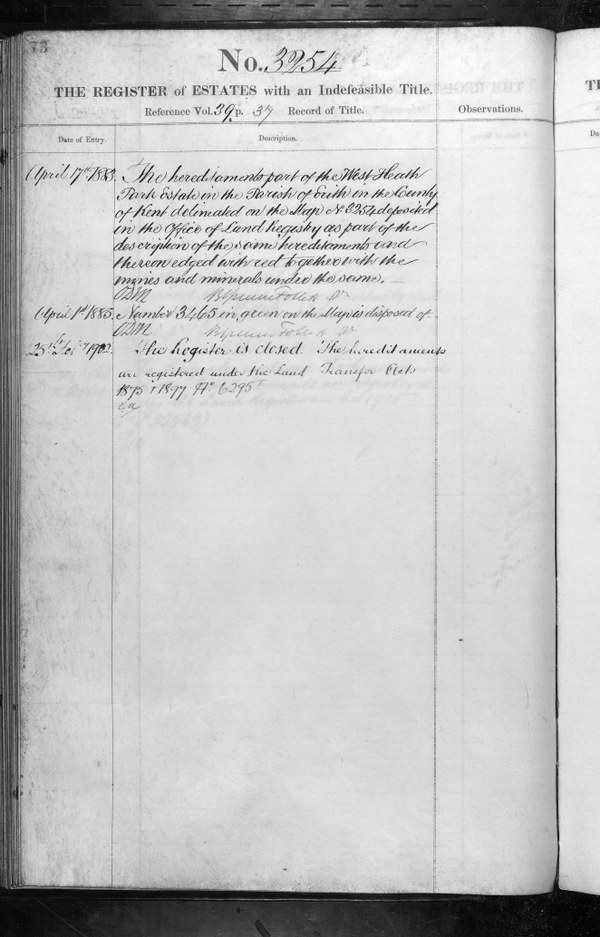 73
No. 3254
THE REGISTER of ESTATES with an Indefeasible Title.
Reference Vol. 39 p. 37 Record of Title.
Observations.
Date of Entry.
Description.
April 17th 1883. The hereditaments part of the West Heath
Park Estate in the Parish of Erith in the County
of Kent delineated on the Map No 3254 deposited
in the Office of Land Registry as part of the
description of the same hereditaments and
thereon edged with red together with the
mines and minerals under the same.
April 1st 1885. Number 3465 in green on the Map is disposed of.
25th 1902. The Register is closed. The hereditaments
are registered under the Land Transfer Acts
1875 & 1897 No 6295